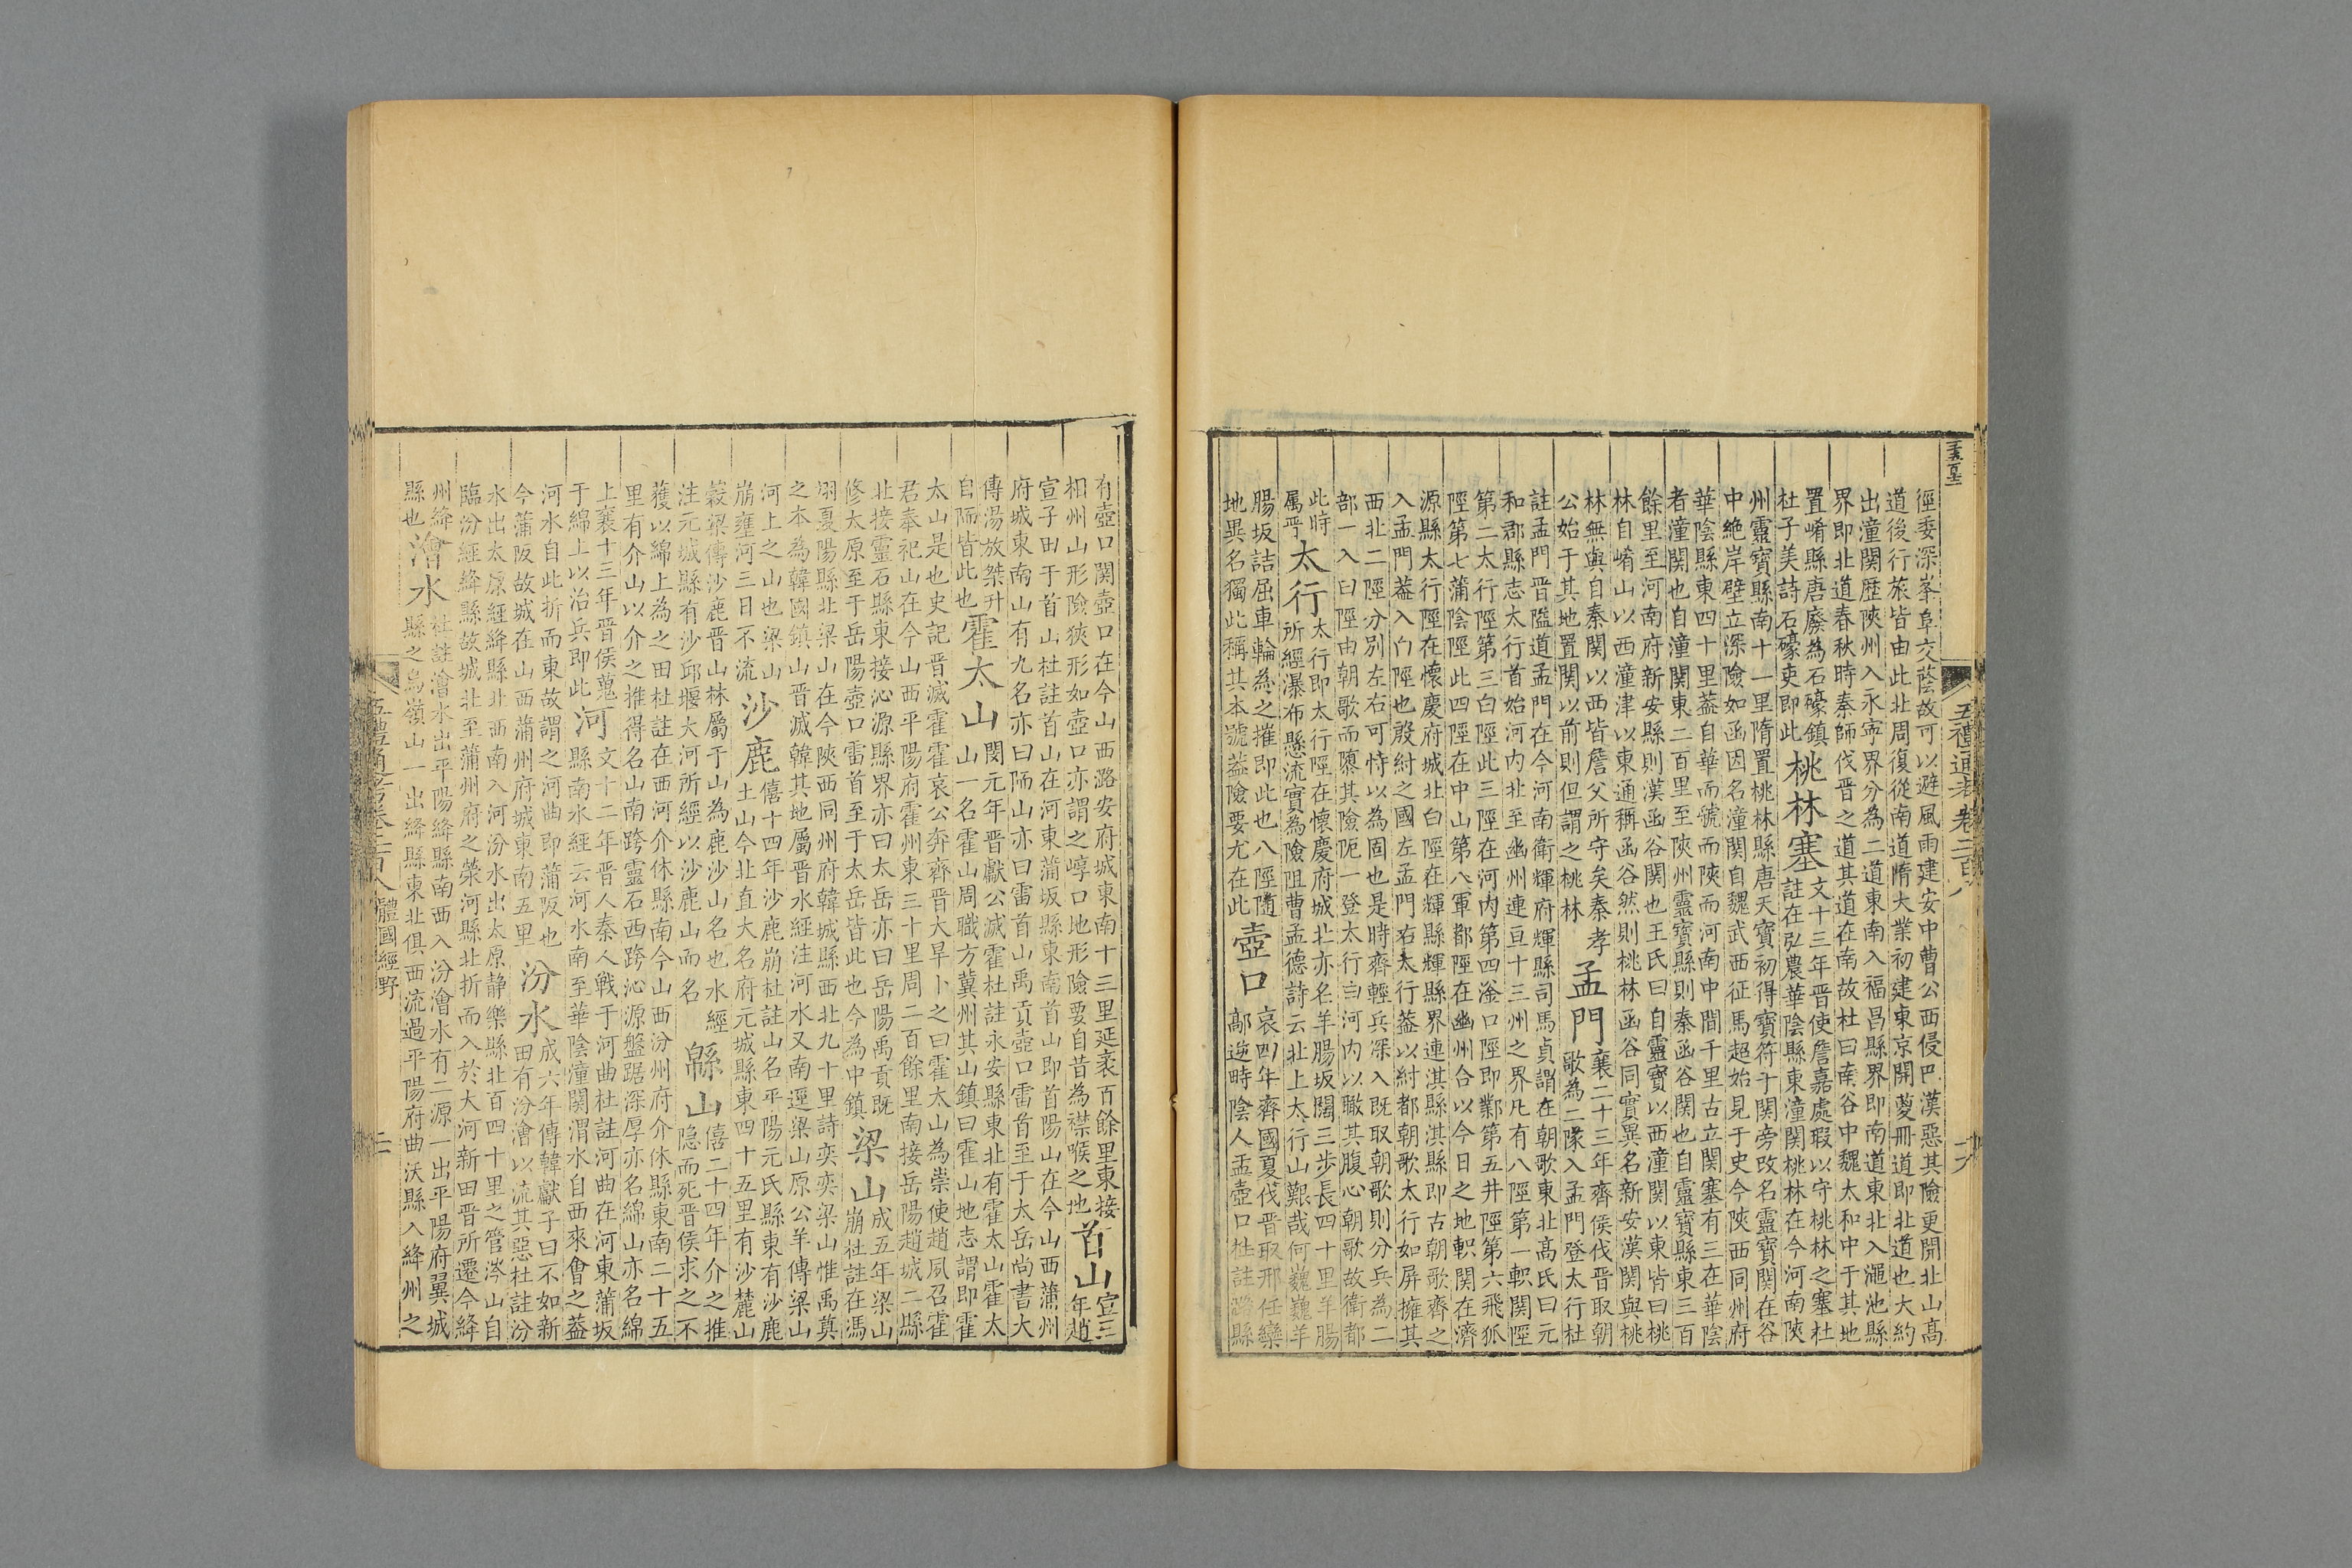 徑委深峯阜交蔭故可以避風雨建安中曹公西侵巴漢惡其險更開北山高
道後行旅皆由此北周復從南道隋大業初建東京開𦽆冊道即北道也大約
出潼關歷陝州入永寜界分為二道東南入福昌縣界即南道東北入澠池縣
界即北道春秋時秦師伐晉之道其道在南故杜曰南谷中魏太和中于其地
置崤縣唐廢為石壕鎮
杜子美詩石壕吏即此
桃林塞
文十三年晉使詹嘉處瑕以守桃林之塞杜
註在弘農華陰縣東潼關桃林在今河南陝
州靈寶縣南十一里隋置桃林縣唐天寶初得寶符于關旁改名靈寶關在谷
中絶岸壁立深險如函因名潼關自魏武西征馬超始見于史今陝西同州府
華陰縣東四十里葢自華而虢而陝而河南中間千里古立關塞有三在華陰
者潼關也自潼關東二百里至陝州靈寶縣則秦函谷關也自靈寶縣東三百
餘里至河南府新安縣則漢函谷關也王氏曰自靈寶以西潼關以東皆曰桃
林自崤山以西潼津以東通稱函谷然則桃林函谷同實異名新安漢關與桃
林無與自秦關以西皆詹父所守矣秦孝
公始于其地置關以前則但謂之桃林
孟門
襄二十三年齊侯伐晉取朝
歌為二隊入孟門登太行杜
註孟門晉隘道孟門在今河南衛輝府輝縣司馬貞謂在朝歌東北高氏曰元
和郡縣志太行首始河内北至幽州連亘十三州之界凡有八陘第一軹關陘
第二太行陘第三白陘此三陘在河内第四滏口陘即鄴第五井陘第六飛狐
陘第七蒲陰陘此四陘在中山第八軍都陘在幽州合以今日之地軹関在濟
源縣太行陘在懷慶府城北白陘在輝縣輝縣界連淇縣淇縣即古朝歌齊之
入孟門葢入白陘也殷紂之國左孟門右太行葢以紂都朝歌太行如屏擁其
西北二陘分別左右可恃以為固也是時齊輕兵深入既取朝歌則分兵為二
部一入白陘由朝歌而隳其險阨一登太行㫖河内以瞰其腹心朝歌故衛都
此時
屬晉
太行
太行即太行陘在懷慶府城北亦名羊腸坂闊三步長四十里羊腸
所經瀑布懸流實為險阻曹孟德詩云北上太行山艱哉何巍巍羊
腸坂詰屈車輪為之摧即此也八陘隨
地異名獨此稱其本號葢險要尤在此
壺口
哀四年齊國夏伐晉取邢任欒
鄗逆畤陰人盂壺口杜註潞縣
五禮通考卷二百八
有壺口関壺口在今山西潞安府城東南十三里延袤百餘里東接
相州山形險狹形如壺口亦謂之崞口地形險要自昔為襟喉之地
首山
宣三
年趙
宣子田于首山杜註首山在河東蒲坂縣東南首山即首陽山在今山西蒲州
府城東南山有九名亦曰陑山亦曰雷首山禹貢壺口雷首至于太岳尚書大
傳湯放桀升
自陑皆此也
霍太山
閔元年晉獻公滅霍杜註永安縣東北有霍太山霍太
山一名霍山周職方冀州其山鎮曰霍山地志謂即霍
太山是也史記晉滅霍霍哀公奔齊晉大旱卜之曰霍太山為祟使趙夙召霍
君奉祀山在今山西平陽府霍州東三十里周二百餘里南接岳陽趙城二縣
北接靈石縣東接沁源縣界亦曰太岳亦曰岳陽禹貢既
修太原至于岳陽壺口雷首至于太岳皆此也今為中鎮
梁山
成五年梁山
崩杜註在馮
翊夏陽縣北梁山在今陝西同州府韓城縣西北九十里詩奕奕梁山惟禹甸
之本為韓國鎮山晉滅韓其地屬晉水經注河水又南逕梁山原公羊傳梁山
河上之山也梁山
崩壅河三日不流
沙鹿
僖十四年沙鹿崩杜註山名平陽元氏縣東有沙鹿
土山今北直大名府元城縣東四十五里有沙麓山
穀梁傳沙鹿晉山林屬于山為鹿沙山名也水經
注元城縣有沙邱堰大河所經以沙鹿山而名
緜山
僖二十四年介之推
隐而死晉侯求之不
獲以綿上為之田杜註在西河介休縣南今山西汾州府介休縣東南二十五
里有介山以介之推得名山南跨靈石西跨沁源盤踞深厚亦名綿山亦名綿
上襄十三年晉侯蒐
于綿上以治兵即此
河
文十二年晉人秦人戰于河曲杜註河曲在河東蒲坂
縣南水經云河水南至華陰潼関渭水自西來會之葢
河水自此折而東故謂之河曲即蒲阪也
今蒲阪故城在山西蒲州府城東南五里
汾水
成六年傳韓獻子曰不如新
田有汾澮以流其惡杜註汾
水出太原經絳縣北西南入河汾水出太原静樂縣北百四十里之管涔山自
臨汾經絳縣故城北至蒲州府之滎河縣北折而入於大河新田晉所遷今絳
州絳
縣也
澮水
杜註澮水出平陽絳縣南西入汾澮水有二源一出平陽府翼城
縣之烏嶺山一出絳縣東北俱西流過平陽府曲沃縣入絳州之
五禮通考卷二百八 體國經野